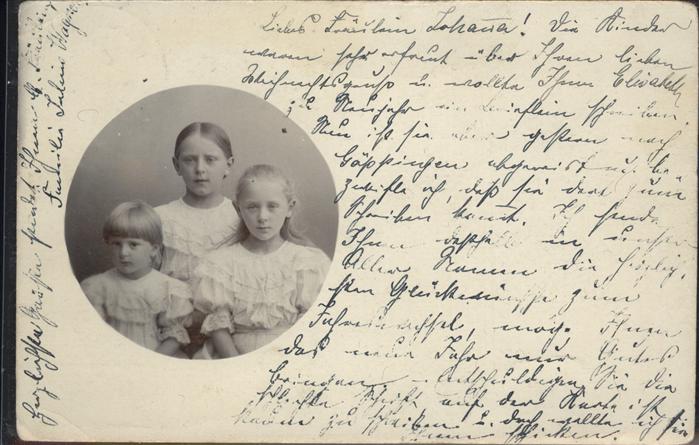 Liebes Fräulein Johanna! Die Kinder
waren sehr erfreut über Ihren lieben
Weihnachtsgruß u. wollte Ihnen Elisabeth
z. Neujahr ein Brieflein schreiben.
Nun ist sie aber gestern nach
Göppingen abgereist u. be-
zweifle ich, daß sie dort zum
Schreiben kommt. Ich sende
Ihnen deshalb in unser
Aller Namen die herzlich-
sten Glückwünsche zum
Jahreswechsel, mög. Ihnen
das neue Jahr nur Gutes
bringen. Entschuldigen Sie die
schlechte Schrift, auf der Karte ist
kaum zu schreiben u. doch wollte ich sie
Ihnen schicken.
Herzlichste Grüße sendet Ihnen
Familie Julius